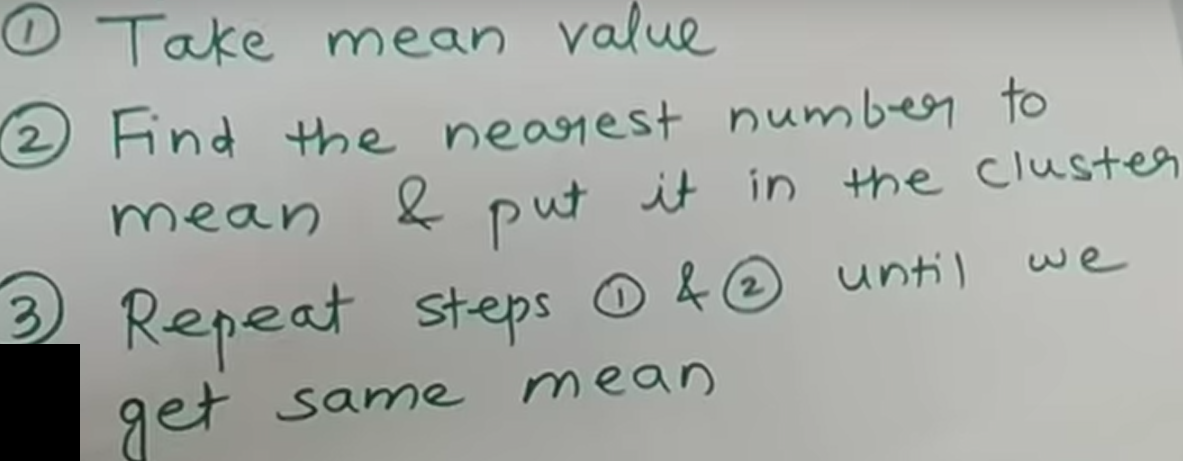 ① Take mean value
② Find the nearest number to
mean & put it in the cluster
③ Repeat steps ① & ② until we
get same mean